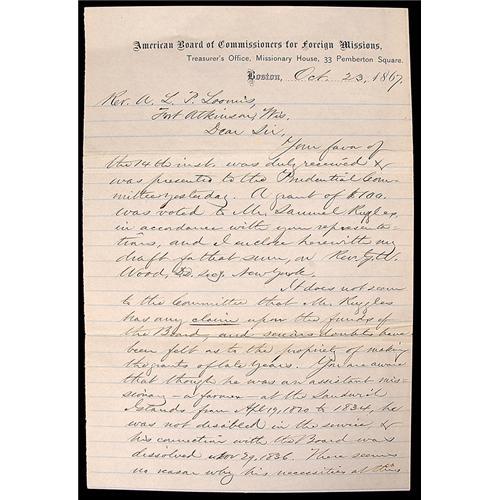 American Board of Commissioners for Foreign Missions,
Treasurer's Office, Missionary House, 33 Pemberton Square.
Boston, Oct. 23, 1867.
Rev. A. L. P. Loomis,
Fort Atkinson, Wis.
Dear Sir,
Your favor of
the 14th inst. was duly received &
was presented to the Prudential Com-
mittee yesterday. A grant of $100.
was voted to Mr. Samuel Ruggles,
in accordance with your representa-
tions, and I enclose herewith my
draft for that sum, on Rev.
Wood, D.D. Secy, New York.
It does not seem
to the Committee that Mr. Ruggles
has any claim upon the funds of
the Board, and serious doubts have
been felt as to the propriety of making
the grants of late years. You are aware
that though he was an assistant mis-
sionary - a farmer - at the Sandwich
Islands from Apl 19, 1820 to 1834, he
was not disabled in the service, &
his connection with the Board was
dissolved Nov 29, 1836. There seems
no reason why his necessities at this